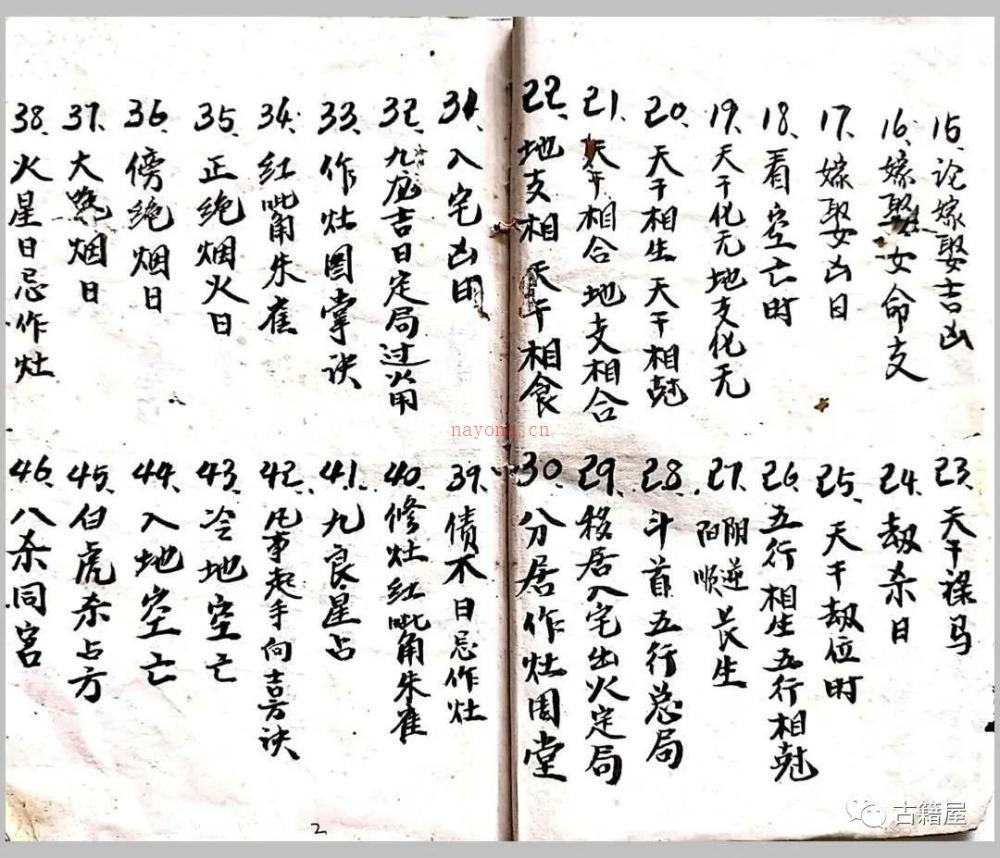 15、论嫁娶吉凶
16、嫁娶女命支
17、嫁娶凶日
18、看空亡时
19、天干化无地支化无
20、天干相生天干相尅
21、天干相合地支相合
22、地支相 天干相食
23、天干禄马
24、劫杀日
25、天干劫位时
26、五行相生五行相尅
27、阴逆阳顺长生
28、斗首五行总局
29、移居入宅出火定局
30、分居作灶周堂
31、入宅凶日
32、九 吉日定局过
33、作灶图掌诀
34、红 朱雀
35、正绝烟火日
36、傍绝烟日
37、大 烟日
38、火星日忌作灶
39、债不日忌作灶
40、修灶红 朱雀
41、九良星占
42、凡事起手向喜方诀
43、冷地空亡
44、入地空亡
45、白虎杀占方
46、八杀同宫
2
nayona.cn
古籍屋